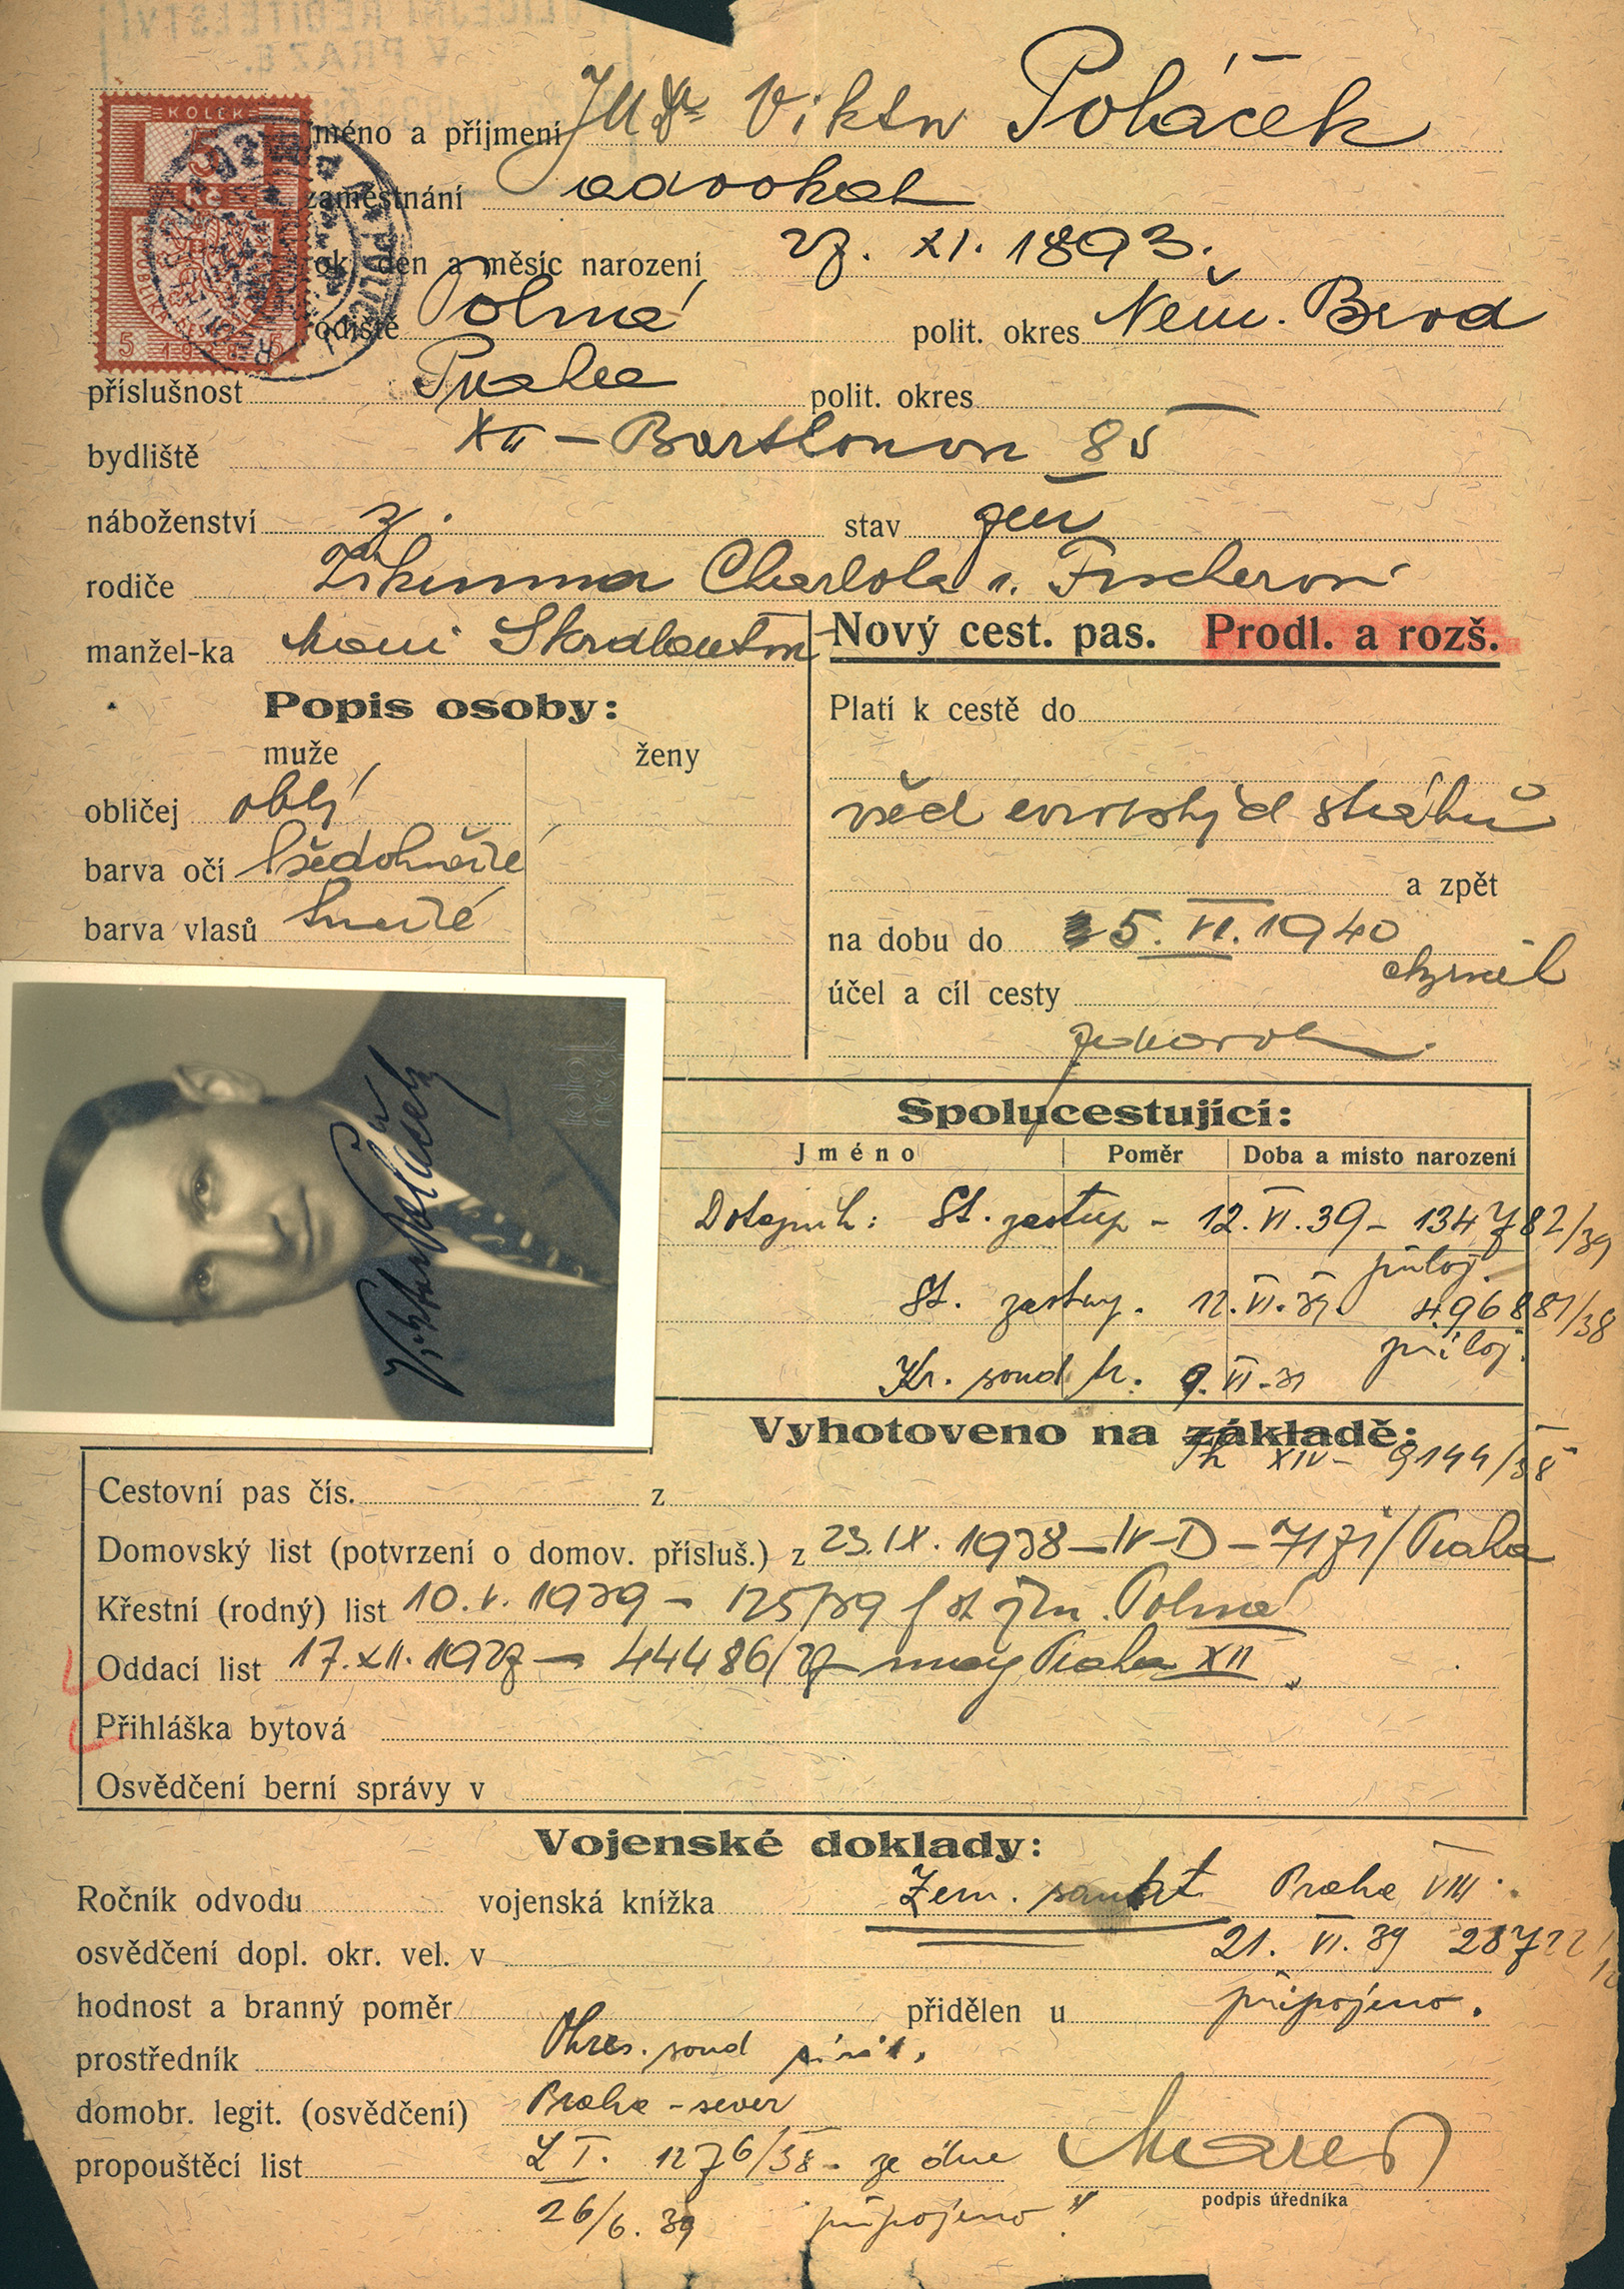 POLICEJNÍ ŘEDITELSTVÍ
V PRAZE.
KOLEK
5
Kč
5 5
Jméno a příjmení JUDr Viktor Poláček
zaměstnání advokát
rok, den a měsíc narození 27. XI. 1893.
rodiště Polná polit. okres Něm. Brod
příslušnost Praha polit. okres
bydliště XII – 85
náboženství ž. stav žen
rodiče Charlota r. Fischerová
manžel-ka
Nový cest. pas. Prodl. a rozš.
Popis osoby:
muže ženy
obličej oblý
barva očí šedohnědé
barva vlasů hnědé
Platí k cestě do
všech evropských států
a zpět
na dobu do 5. VI. 1940
účel a cíl cesty
Viktor Poláček
Spolucestující:
Jméno Poměr Doba a místo narození
St. zastup – 12. VI. 39 – 134782/39
přilož.
St. zastup. 12. VI. 39. 496881/38
přilož.
Kr. soud tr. 9. VI. 39
Vyhotoveno na základě:
XIV – 9144/38
Cestovní pas čís. z
Domovský list (potvrzení o domov. přísluš.) z 23. IX. 1938 – IV-D – 7171/Praha
Křestní (rodný) list 10. V. 1939 – 125/39 Polná
Oddací list 17. XII. 1927 – 44486/27 Praha XII
Přihláška bytová
Osvědčení berní správy v
Vojenské doklady:
Ročník odvodu vojenská knížka Zem. Praha VIII.
osvědčení dopl. okr. vel. v 21. VI. 39 28722
hodnost a branný poměr přidělen u připojeno.
prostředník Okres. soud
domobr. legit. (osvědčení) Praha – sever
propouštěcí list Z I. 1276/38 – ze dne
podpis úředníka
26/6. 39 připojeno